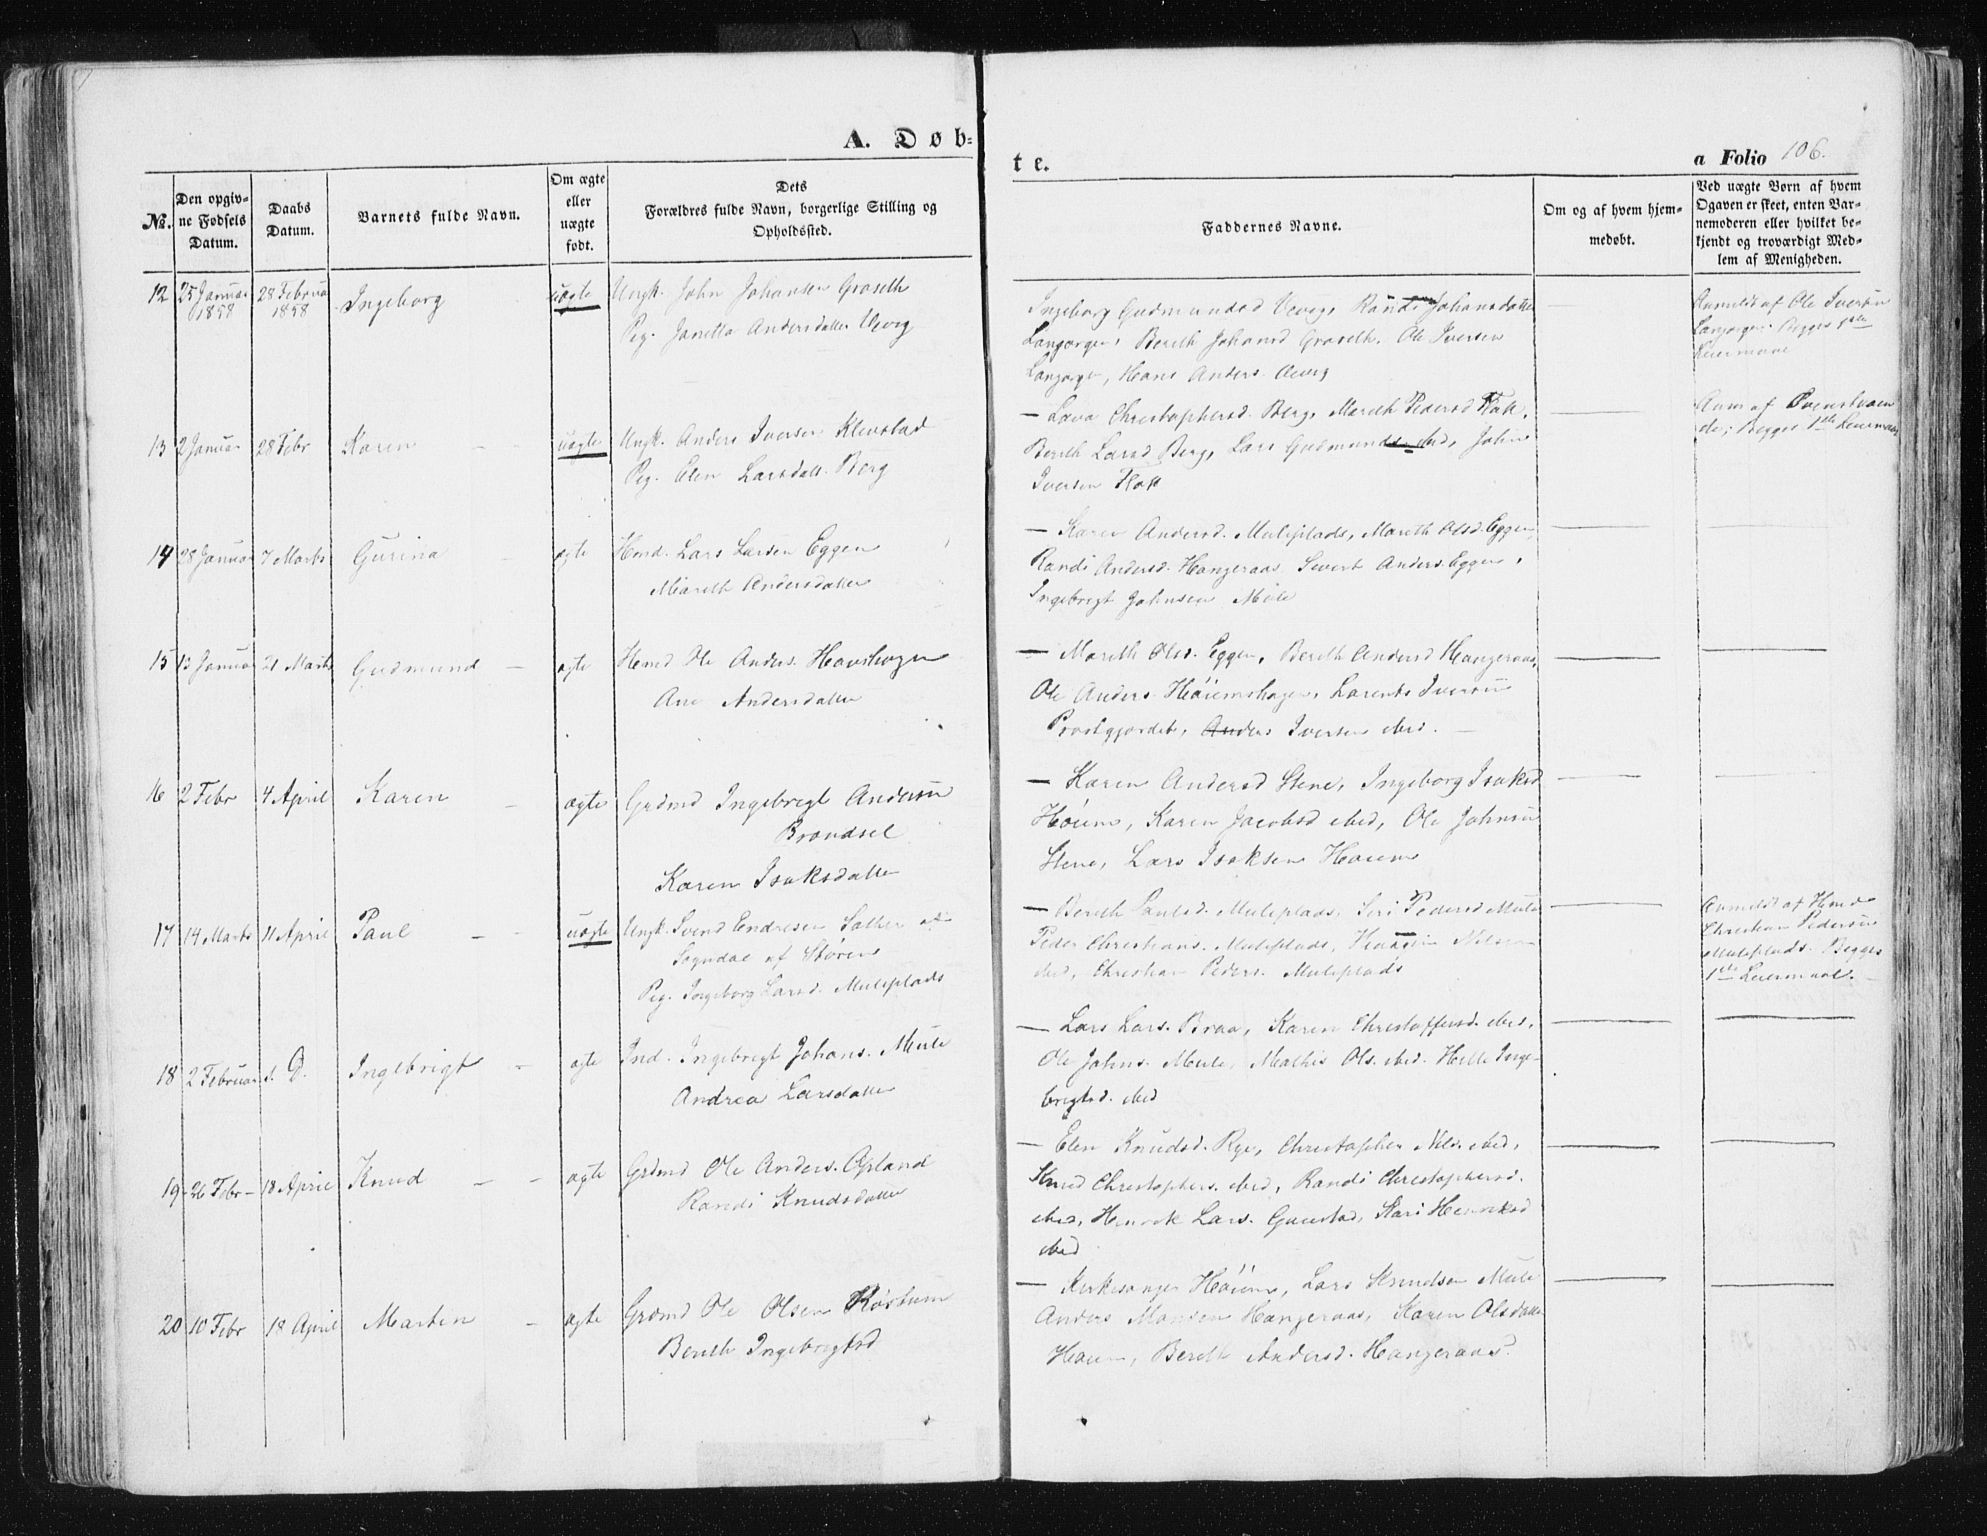 A. Døb-
te.
a Folio 106.
No.
Den opgiv-
ne Fødsels
Datum.
Daabs
Datum.
Barnets fulde Navn.
Om ægte
eller
uægte
født.
Dets
Forældres fulde Navn, borgerlige Stilling og
Opholdssted.
Faddernes Navne.
Om og af hvem hjem-
medøbt.
Ved uægte Børn af hvem
Opgaven er skeet, enten Bar-
nemoderen eller hvilket be-
kjendt og troværdigt Med-
lem af Menigheden.
12 25 Januar 1858 28 Februar 1858 Ingeborg uægte
Ungk. John Johansen Graseth
Pig. Janetta Andersdatter Vevig
Ingeborg Gudmundsd Vevig, Randi Johansdatter
Langørgen, Bereth Johansd Graseth. Ole Iversen
Langørgen, Hans Anders. Vevig
Anmeldt af Ole Iversen
Langørgen. Begges 1ste
Leiermaal
13 2 Januar 28 Febr Karen uægte
Ungk. Anders Iversen Klevstad
Pig. Elen Larsdatt. Berg
— Christophersd. Berg, Mareth Pedersd Flak,
Bereth Larsd Berg, Lars Gudmunds. ibid, John
Iversen Flak
Anm af
de; Begges 1ste Leiermaal
14 28 Januar 7 Marts Gurina ægte
Hmd. Lars Larsen Eggen
Mareth Andersdatter
— Karen Andersd. Muleplads, Mareth Olsd. Eggen,
Randi Andersd. Hangeraas Sivert Anders. Eggen,
Ingebrigt Johnsen Mule
15 12 Januar 21 Marts Gudmund — ægte
Hmd Ole Anders. Havshagen
Ane Andersdatter
— Mareth Olsd. Eggen, Bereth Andersd Hangeraas,
Ole Anders. Høiemshagen, Larents Iversen
Prostgjordet, Anders Iversen ibid.
16 2 Febr 4 April Karen — ægte
Grdmd Ingebrigt Andersen
Brandsel
Karen Isaksdatter
— Karen Andersd Stene, Ingeborg Isaksd
Høiem, Karen Jacobsd ibid, Ole Johnsen
Stene, Lars Isaksen Høiem
17 14 Marts 11 April Paul — — uægte
Ungk. Svend Endresen af
Sogndal af Støren
Pig. Ingeborg Larsd. Muleplads
— Bereth Paulsd. Muleplads, Siri Pedersd Mule
Peder Christians. Muleplads, Nilsen
ibid, Christian Peders. Muleplads
Anmeldt af Hmd
Christian Pedersen
Muleplads. Begges
1ste Leiermaal.
18 2 Februar s. D. Ingebrigt — ægte
Ind. Ingebrigt Johans. Mule
Andrea Larsdatter
— Lars Lars. Braa, Karen Christoffersd. ibid,
Ole Johns. Mule, Mathis Ols. ibid. Inge-
brigtsd. ibid
19 26 Febr — 18 April Knud — — ægte
Grdmd Ole Anders. Opland
Randi Knudsdatter
— Elen Knudsd. Rye, Christopher Nils. ibid,
Knud Christophers. ibid, Randi Christophersd.
ibid, Henrik Lars. Kari Henriksd
ibid
20 10 Febr 18 April Marten — ægte
Grdmd Ole Olsen Røstum
Bereth Ingebrigtsd
— Kirkesanger Høiem, Lars Knudsen Mule
Anders Monsen Hangeraas, Karen Olsdatter
Høiem, Bereth Andersd. Hangeraas.